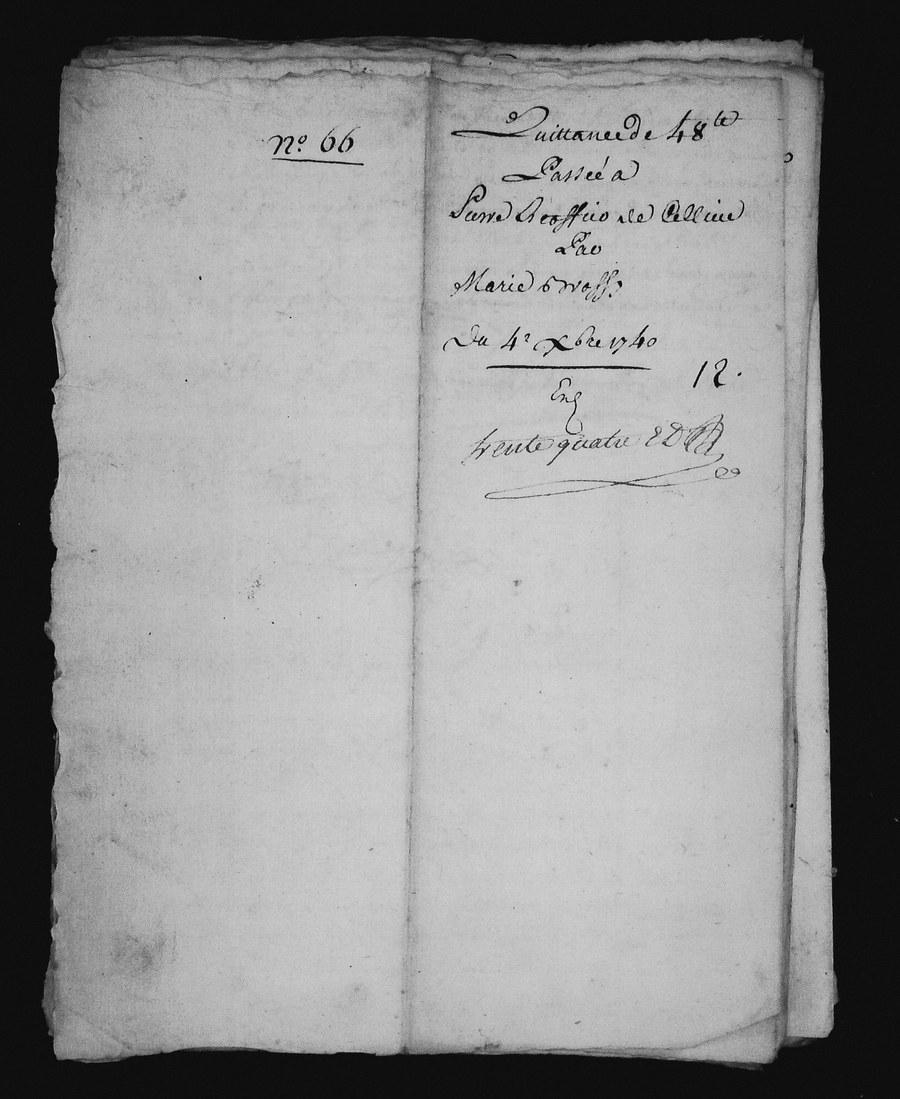 nº 66
Quittance de 48 lt
Passée a
Pierre de Celline
Par
Marie
Du 4e Xbre 1740
12.
Enq
trente quatre